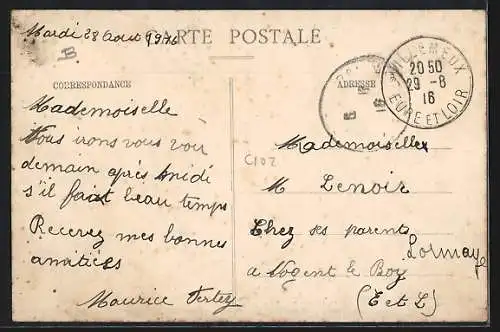 Mardi 28 Aout 1916
B
CARTE POSTALE
CORRESPONDANCE
ADRESSE
VILLEMEUX
20 50
29 - 8
16
EURE ET LOIR
Mademoiselle
Nous irons vous voir
demain après midi
s'il fait beau temps
Recevez mes bonnes
amitiés
Maurice
C102
Mademoiselle
M Lenoir
Chez ses parents
Lormaye
a Nogent le Roy
(E et L)